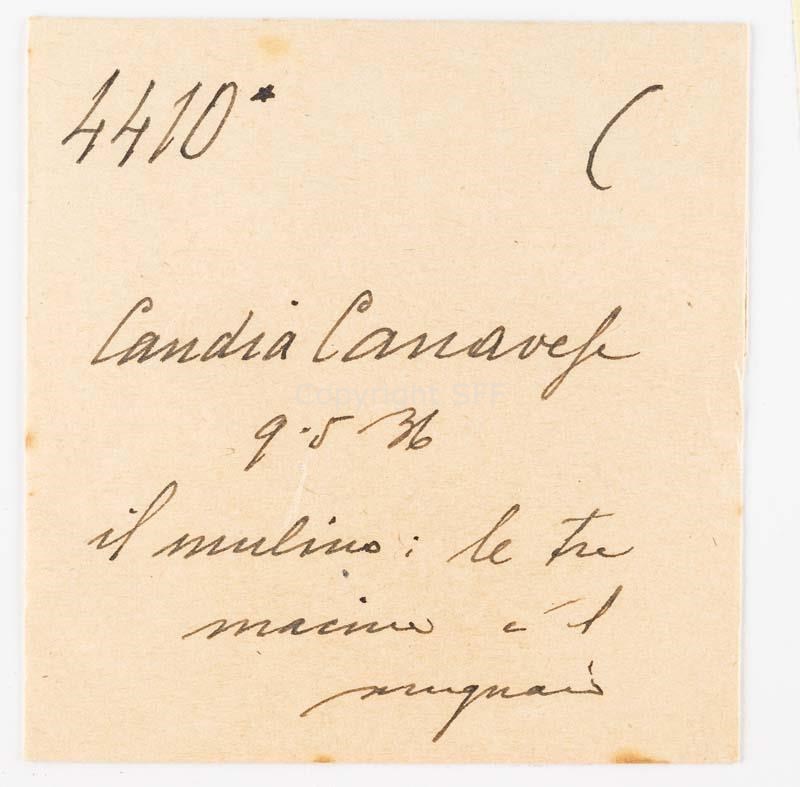 4410* (
Candia Canavese
9·5 36
il mulino: le tre
Copyright SFF
macine e il
mugnaio